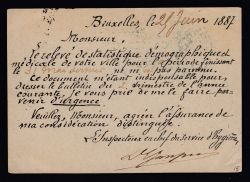 Bruxelles, le 21 Juin 1887
Monsieur,
Le relevé de statistique démographique &
médicale de votre ville pour la période finissant
le ne m'est pas parvenu.
Ce document m'étant indispensable pour
dresser le bulletin du trimestre de l'année
courante, je vous prie de me le faire par-
venir d'urgence
Veuillez, Monsieur, agréer l'assurance de
ma considération distinguée.
L'Inspecteur en chef du Service d'hygiène,